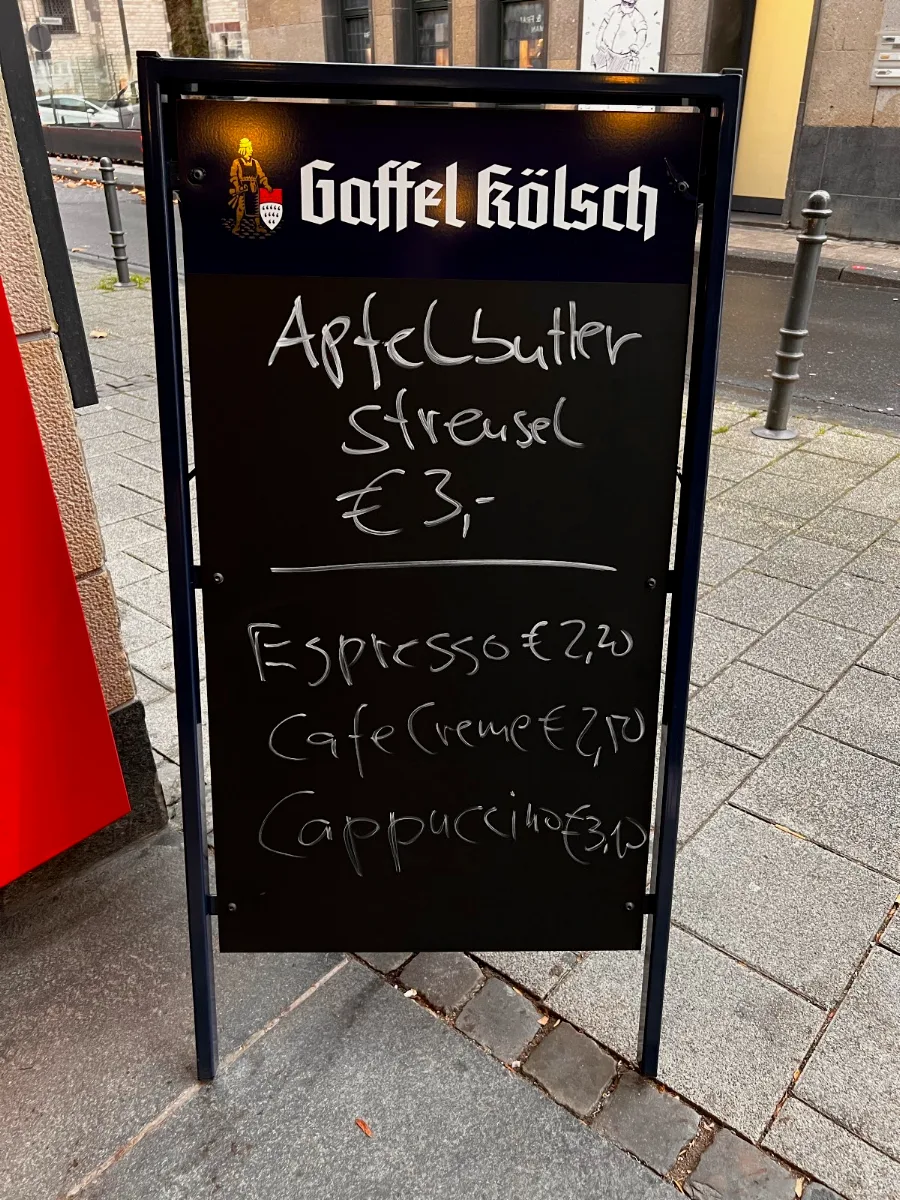 Gaffel Kölsch
Apfelbutter
Streusel
€ 3,-
Espresso € 2,20
Cafe Creme € 2,50
Cappuccino € 3,10